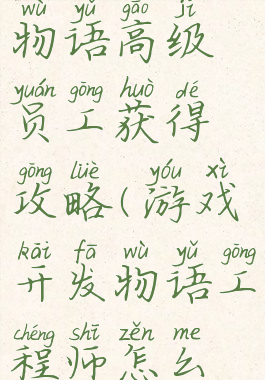 wù yǔ gāo jí
物语高级
yuán gōng huò dé
员工获得
gōng lüè yóu xì
攻略(游戏
kāi fā wù yǔ gōng
开发物语工
chéng shī zěn me
程师怎么